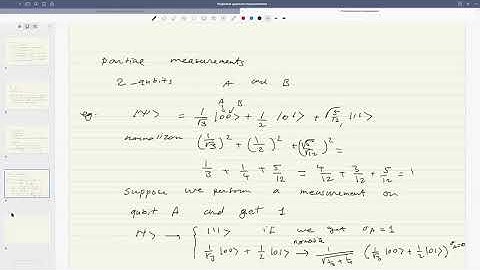 partial measurements
2 qubits A and B
A B
eg: |ψ> = 1/√3 |00> + 1/2 |01> + √5/√12 |11>
normalization (1/√3)² + (1/2)² + (√5/√12)² =
1/3 + 1/4 + 5/12 = 4/12 + 3/12 + 5/12 = 1
suppose we perform a measurement on
qubit A and get 1
|ψ> → { |11> if we get σA = 1
1/√3 |00> + 1/2 |01> → 1/√(1/3 + 1/4) (1/√3 |00> + 1/2 |01>) σA=0